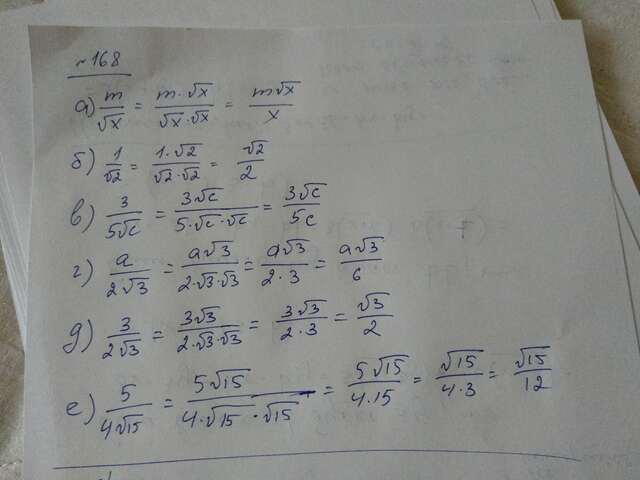 №168
а) m/√x = m·√x/√x·√x = m√x/x
б) 1/√2 = 1·√2/√2·√2 = √2/2
в) 3/5√c = 3√c/5·√c·√c = 3√c/5c
г) a/2√3 = a√3/2·√3·√3 = a√3/2·3 = a√3/6
д) 3/2√3 = 3√3/2·√3·√3 = 3√3/2·3 = √3/2
е) 5/4√15 = 5√15/4·√15·√15 = 5√15/4·15 = √15/4·3 = √15/12